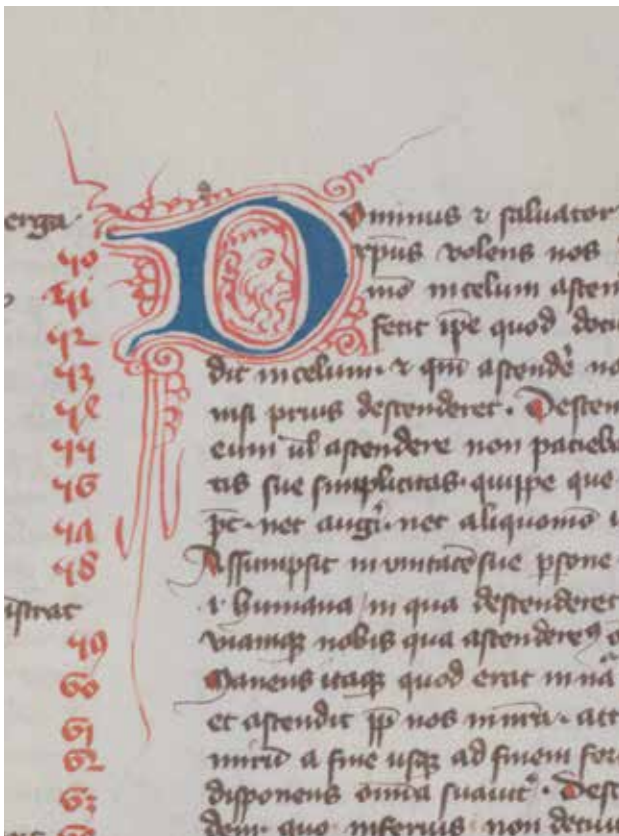 erga.
50
51
52
53
54
55
56
57
58
istrat
59
60
61
62
63
Dominus ⁊ saluator
xp̄us volens nos
in celum ascen
fecit ip̄e quod docu
dit in celum · ⁊ qm̄ ascendē no
nisi prius descenderet . Descen
eum ul̄ ascendere non patieba
tis sue simplicitas · quippe que
pt̄ · nec augi · nec aliquomō
Assumpsit in vnitatē sue p̄sone
⁊ humana in qua descenderet
viamqꝫ nobis qua ascenderemꝰ
Manens itaqꝫ quod erat in nā
et ascendit
a fine usqꝫ ad finem for
disponens om̄ia suauit᾽ . Desc
dem quo inferius non decui